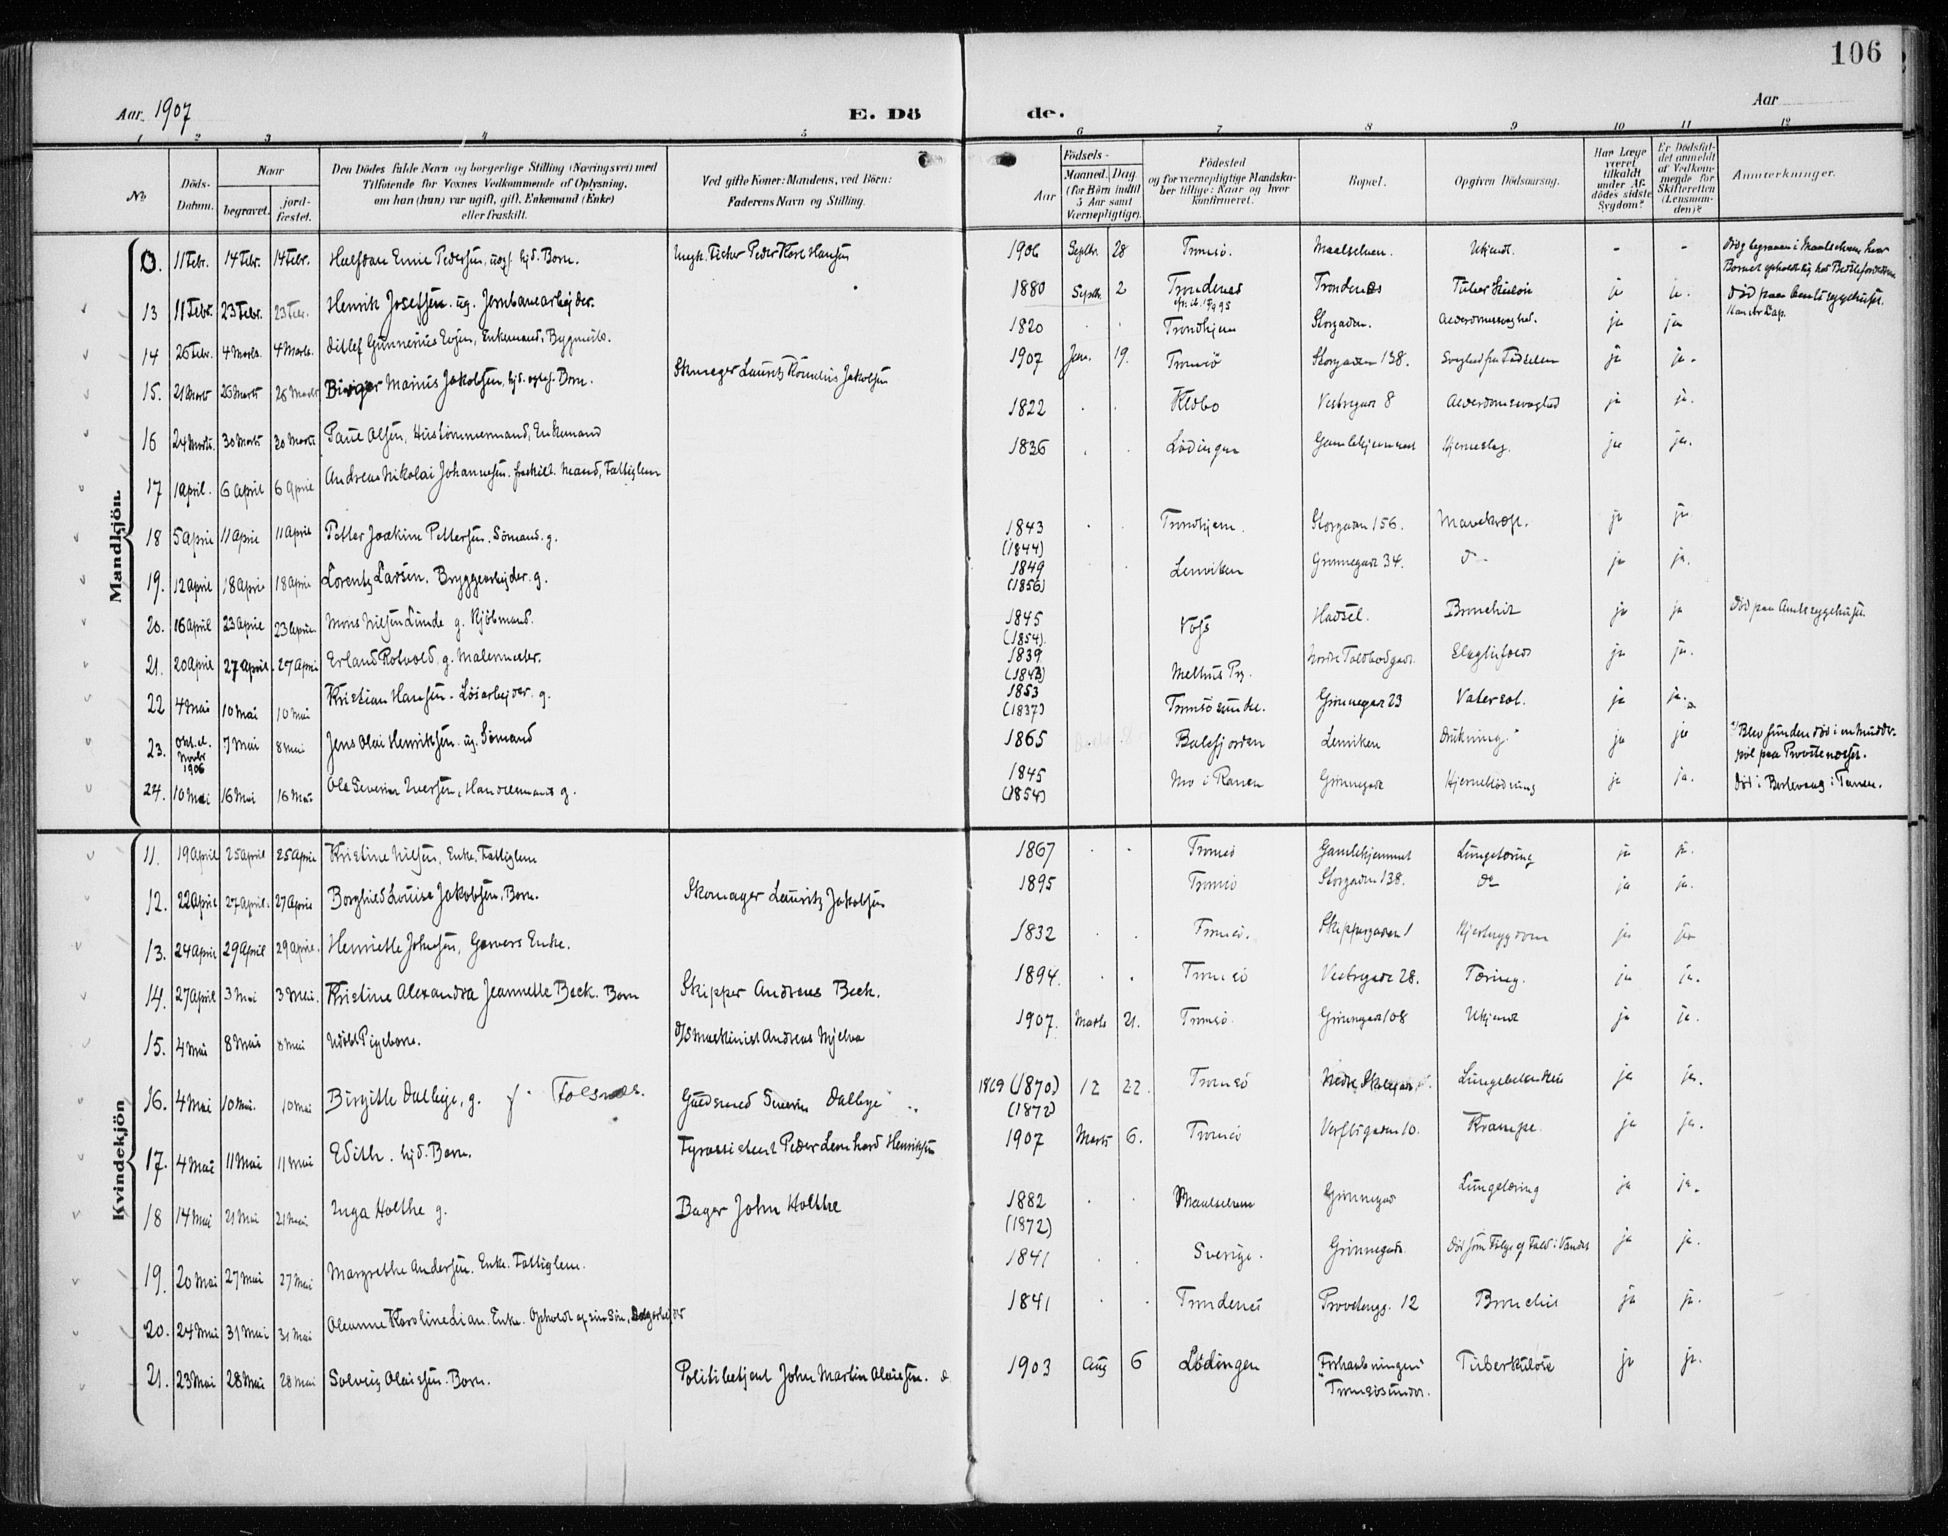 106
Aar 1907
E. Dö de.
Aar
1 2 3 4 5 6 7 8 9 10 11 12
No
Döds-Datum.
Naar
begravet.
jord-fæstet.
Den Dödes fulde Navn og borgerlige Stilling (Næringsvei) med
Tilföiende for Voxnes Vedkommende af Oplysning,
om han (hun) var ugift, gift, Enkemand (Enke)
eller fraskilt.
Ved gifte Koner: Mandens, ved Börn:
Faderens Navn og Stilling.
Födsels-
Aar
Maaned. Dag
(for Börn indtil
5 Aar samt
Værnepligtige).
Födested
og for værnepligtige Mandska-
ber tillige: Naar og hvor
konfirmeret.
Bopæl.
Opgiven Dödsaarsag.
Har Læge
været
tilkaldt
under Af-
dödes sidste
Sygdom?
Er Dödsfal-
det anmeldt
af Vedkom-
mende for
Skifteretten
(Lensman-
den)?
Anmerkninger.
Mandkjön.
0. 11 Febr. 14 Febr. 14 Febr. Halfdan Emil Pedersen, uegt. hjd. Barn. Ungk. Fisker Peder Kore Hansen 1906 Septbr. 28 Tromsö. Maalselven. Ukjendt. - -
13 11 Febr. 23 Febr. 23 Febr. Henrik Josefsen. ug. Jernbanearbejder. 1880 Septbr. 2 Trondenes Trondenes Tuberkulose ja ja.
14 26 Febr. 4 Marts. 4 Marts. Ditlef Gunnerius Evjen, Enkemand, Bygmester. 1820 Trondhjem Storgaden. Alderdomssvaghed. ja ja
15. 21 Marts 26 Marts 26 Marts Birger Marius Jakobsen, hjd. Barn. Skomager Lauritz Kornelius Jakobsen 1907 Jan. 19. Tromsö Storgaden 138. Svaghed fra Födselen ja ja.
16 24 Marts. 30 Marts 30 Marts Paul Olsen, Hustömmermand, Enkemand 1822 Vestregade 8 Alderdomssvaghed ja ja.
17 1 April. 6 April 6 April Andreas Nikolai Johannesen. fraskilt. Mand, Fattiglem 1836 Lödingen Gamlehjemmet Hjerneslag. ja ja.
18 5 April 11 April 11 April Petter Joakim Pettersen. Sömand. g. 1843 (1844) Trondhjem. Storgaden 156. Mavekræft. ja ja
19. 12 April 18 April 18 April Lorentz Larsen. Bryggearbejder. g. 1849 (1856) Lenviken Grönnegade 34. ja ja.
20. 16 April 23 April 23 April Mons Nilsen Lunde g. Kjöbmand. 1845 (1854). Voss Hadsel. Bronchit ja ja Död paa Amtssygehuset.
21. 20 April 27 April. 27 April Erland Rotvold g. Malermester. 1839 (1843) Melhus Pg. Nordre Toldbodgade. ja ja.
22 4 Mai 10 Mai 10 Mai Kristian Hansen. Lösarbejder. g. 1853 (1837) Tromsösundet. Grönnegad 23 Vatersot. ja ja.
23. Novbr 1906 7 Mai 8 Mai Jens Olai Henriksen. ug. Sömand 1865 Balsfjorden Lenviken Drukning. ja ja Blev funden död i en Mudder-
pöl paa Prestenæsset.
24. 10 Mai 16 Mai 16 Mai Ole Severin Iversen, Handelsmand g. 1845 (1854) Mo i Ranen Grönnegade Hjerneblödning ja ja. Död i Berlevaag i Tanen.
Kvindekjön
11. 19 April 25 April 25 April Kristine Nilsen, Enke, Fattiglem 1867 Tromsö Gamlehjemmet Lungetæring ja ja.
12. 22 April 27 April. 27 April Borghild Louise Jakobsen, Barn. Skomager Lauritz Jakobsen 1895 Tromsö Storgaden 138. do ja ja.
13. 24 April 29 April 29 April. Henriette Johnsen, Garvers Enke. 1832 Tromsö. Skippergaden 1 Hjertesygdom ja ja
14. 27 April 3 Mai 3 Mai. Kristine Alexandra Jeannette Beck. Barn Skipper Andreas Beck. 1894. Tromsö Vestregade 28. Tæring. ja ja.
15. 4 Mai 8 Mai 8 Mai Udöbt Pigebarn. D/S Maskinist Andreas Mjelva 1907. Marts 21. Tromsö. Grönnegad 108 Ukjendt ja ja.
16. 4 Mai 10 Mai. 10 Mai Birgitte Dalbye, g. f. Folsnæs. Guldsmed Severin Dalbye 1869 (1870) (1872) 12 22. Tromsö Nedre Skolegade Lungebetændelse ja ja.
17. 4 Mai 11 Mai 11 Mai Edith. hjd. Barn. Fyrassistent Peder Leonhard Henriksen 1907 Marts 6. Tromsö Verftsgaden 10. Krampe. ja ja.
18 14 Mai 21 Mai 21 Mai Inga Holthe g. Bager John Holthe 1882 (1872) Maalselven Grönnegad Lungetæring ja ja.
19. 20 Mai 27 Mai 27 Mai Margrethe Andersen. Enke. Fattiglem. 1841 Sverige. Grönnegade. Död som Fölge af Fald i Vandet ja ja.
20. 24 Mai 31 Mai 31 Mai Oleanne Karoline Lian. Enke. Opholdt af sin Sön, Dagarbejder 1841 Trondenes 12 Bronchit ja ja.
21. 23 Mai 28 Mai 28 Mai Solveig Olaissen. Barn. Politibetjent John Martin Olaissen. 1903 Aug 6 Lödingen Tromsösundet. Tuberkulose ja ja.